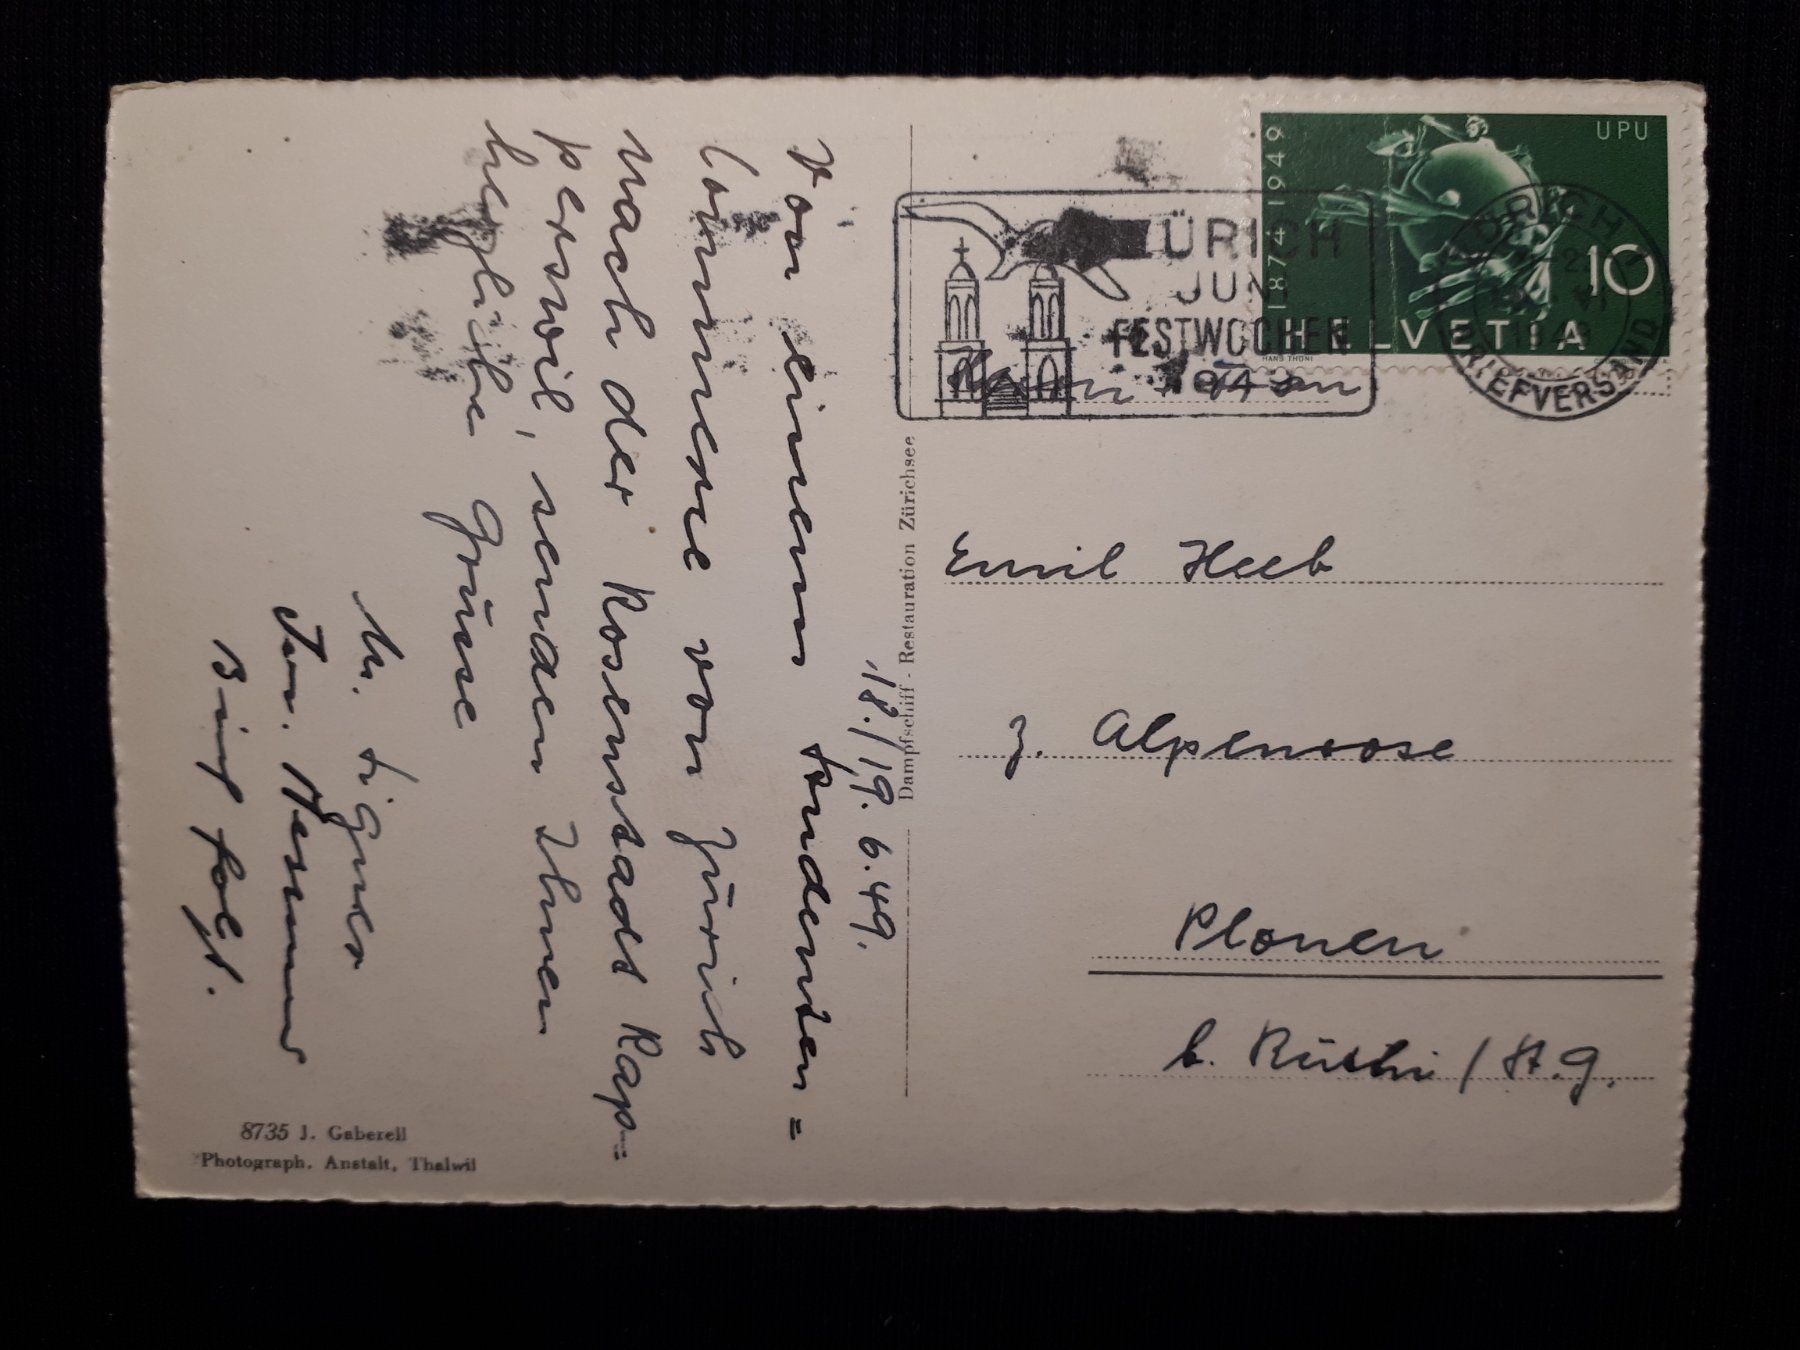 18./19. 6. 49.
Von einem Studenten=
tournee von Zürich
nach der Rosenstadt Rap=
perswil, senden Ihnen
herzliche Grüsse
M. Signer
8735 J. Gaberell
Photograph. Anstalt, Thalwil
Dampfschiff - Restauration Zürichsee
1874 1949
UPU
10
HELVETIA
HANS THÖNI
ZÜRICH
JUNI
FESTWOCHEN
1949
ZÜRICH
BRIEFVERSAND
Emil Heeb
z. Alpenrose
Plonen
b. Rüthi / St. G.